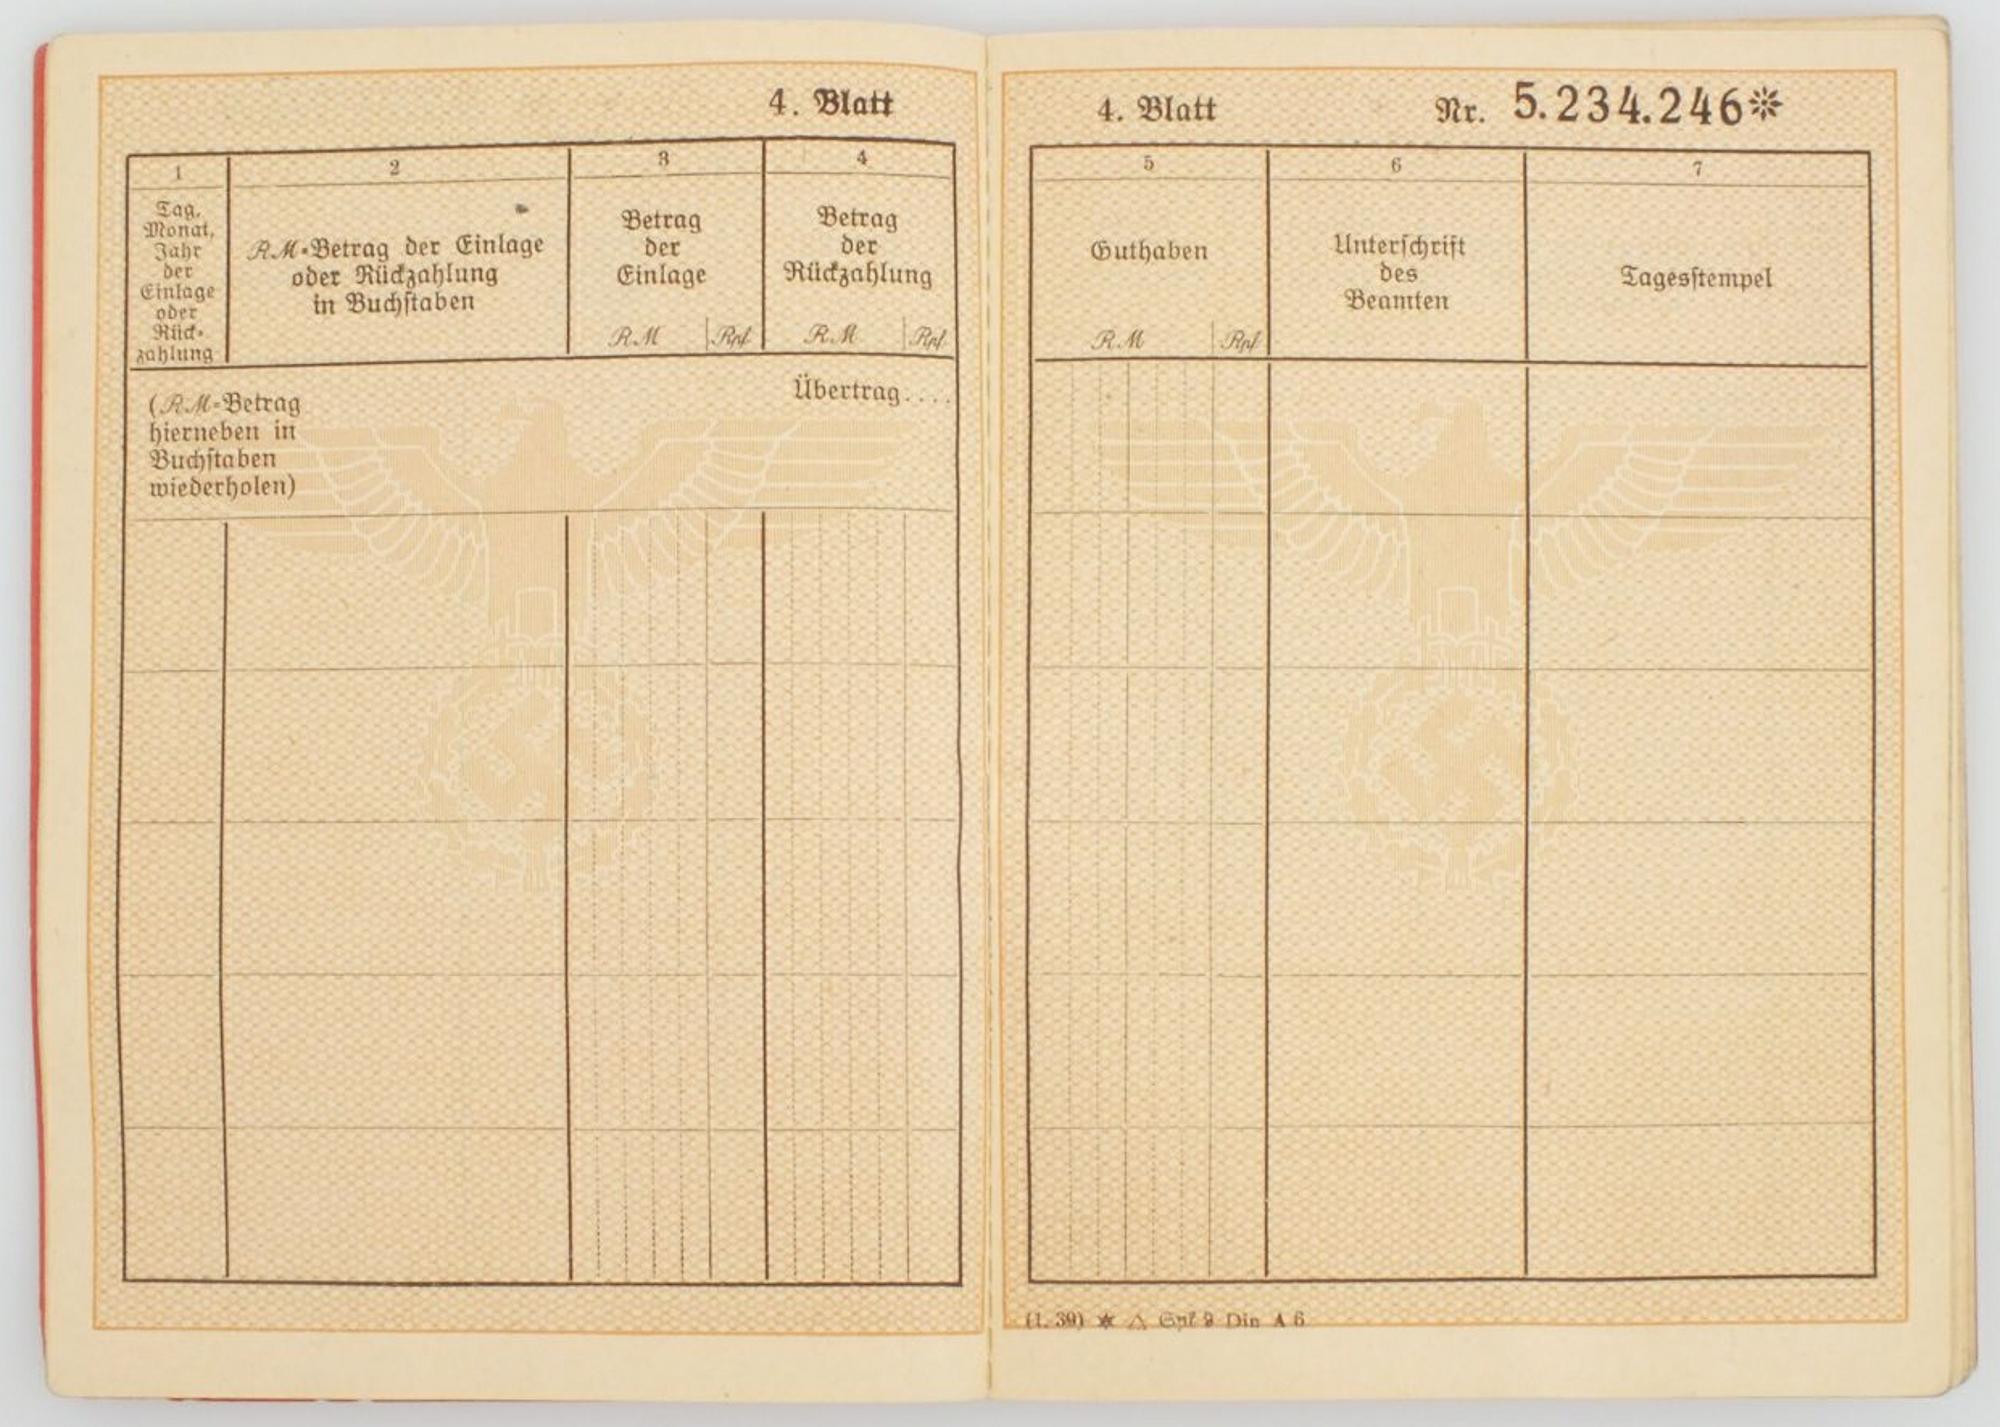 4. Blatt
1
2
3
4
Tag,
Monat,
Jahr
der
Einlage
oder
Rück-
zahlung
RM-Betrag der Einlage
oder Rückzahlung
in Buchstaben
Betrag
der
Einlage
RM Rpf
Betrag
der
Rückzahlung
RM Rpf
(RM-Betrag
hierneben in
Buchstaben
wiederholen)
Übertrag....
4. Blatt Nr. 5.234.246*
5
6
7
Guthaben
RM Rpf
Unterschrift
des
Beamten
Tagesstempel
(1. 39) * △ Din A 6